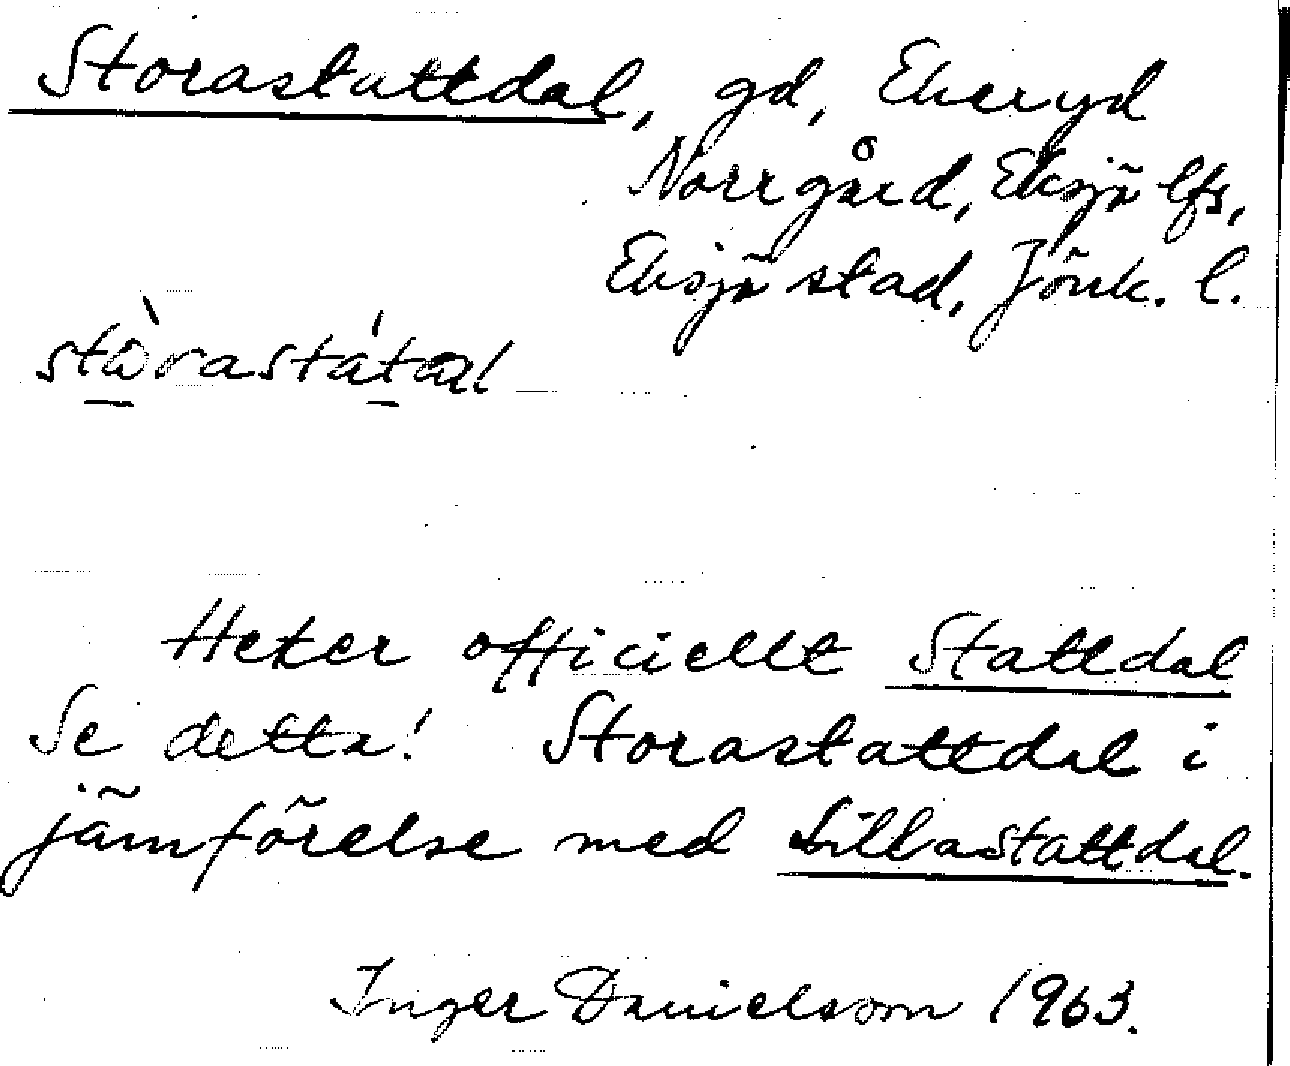 Storastattdal, gd, Ekeryd
Norrgård, Eksjö lfs,
Eksjö stad, Jönk. l.
Heter officiellt Stattdal
Se detta! Storastattdal i
jämförelse med Lillastattdal.
Inger Danielsson 1963.